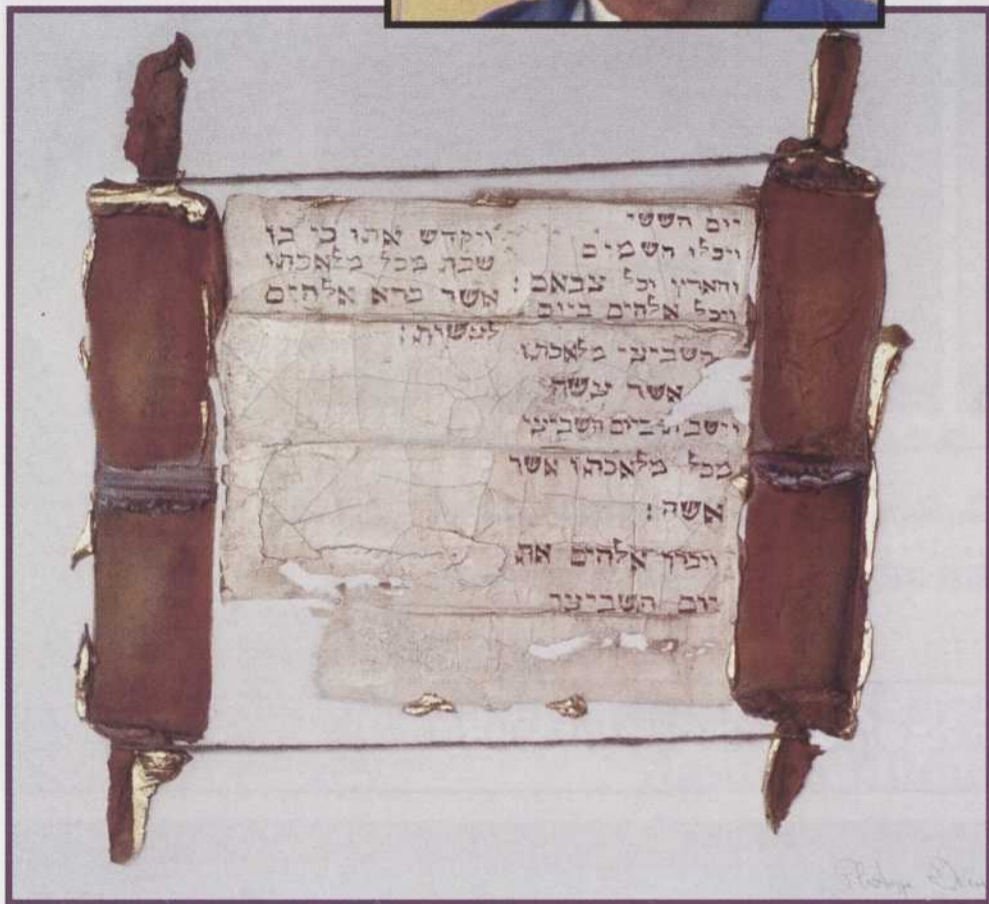 יום הששי
ויכלו השמים
והארץ וכל צבאם :
ויכל אלהים ביום
השביעי מלאכתו
אשר עשה
וישבת ביום השביעי
מכל מלאכתו אשר
אשה :
ויברך אלהים את
יום השביעי
ויקדש אתו כי בו
שבת מכל מלאכתו
אשר ברא אלהים
לעשות :